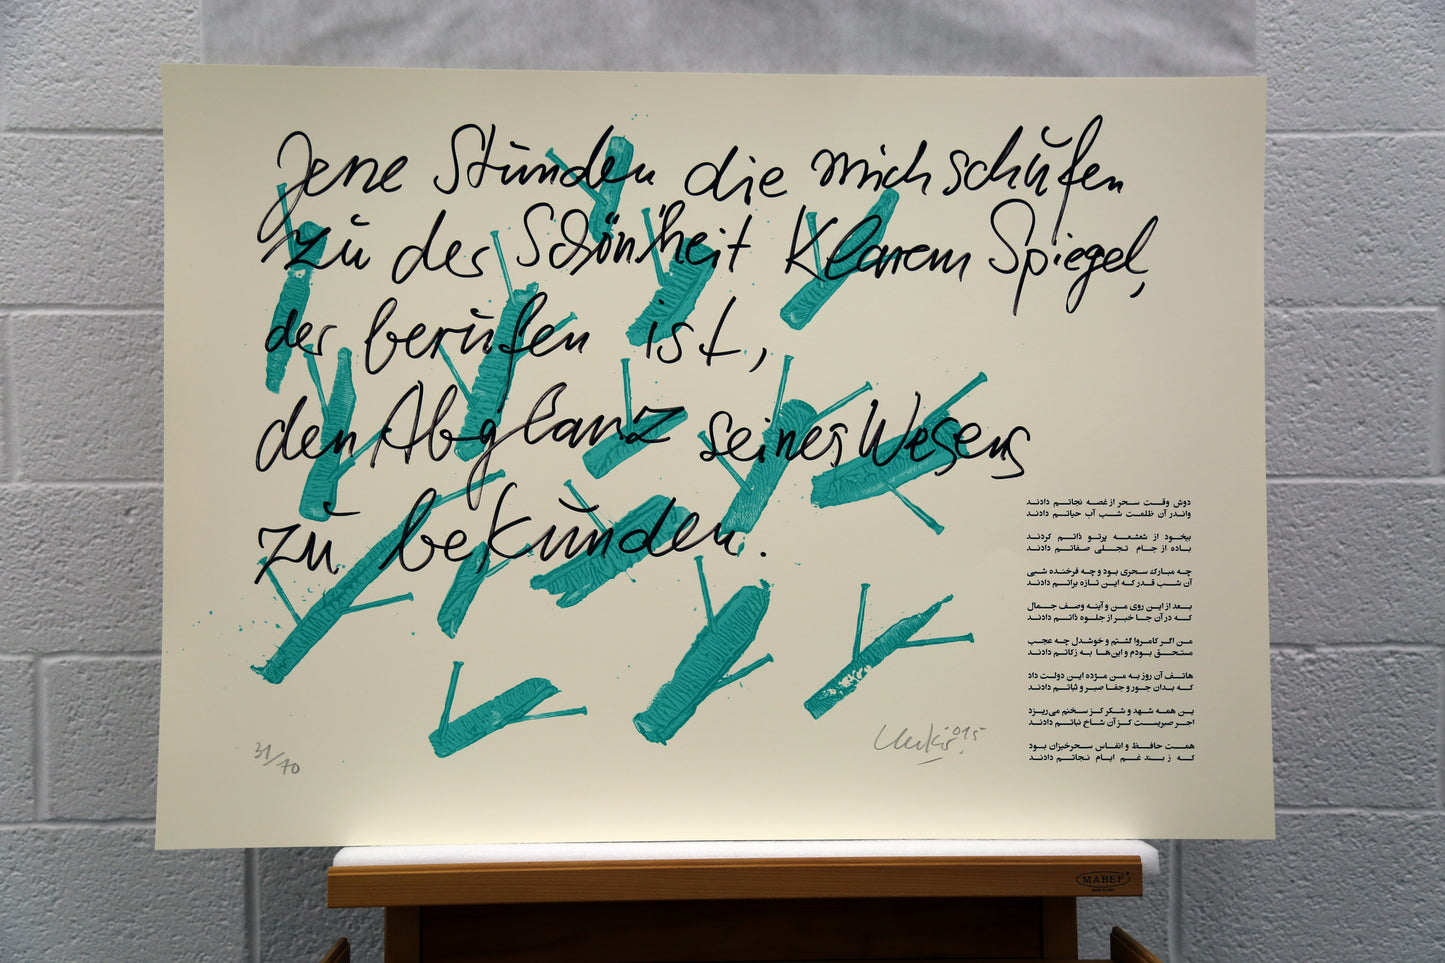 Jene Stunden die mich schufen
zu der Schönheit Klarem Spiegel,
der berufen ist,
den Abglanz seines Wesens
zu bekunden.
دوش وقت سحر از غصه نجاتم دادند
واندر آن ظلمت شب آب حیاتم دادند
بیخود از شعشعه پرتو ذاتم کردند
باده از جام تجلی صفاتم دادند
چه مبارک سحری بود و چه فرخنده شبی
آن شب قدر که این تازه براتم دادند
بعد از این روی من و آینه وصف جمال
که در آن جا خبر از جلوه ذاتم دادند
من اگر کامروا گشتم و خوشدل چه عجب
مستحق بودم و این‌ها به زکاتم دادند
هاتف آن روز به من مژده این دولت داد
که بدان جور و جفا صبر و ثباتم دادند
این همه شهد و شکر کز سخنم می‌ریزد
اجر صبریست کز آن شاخ نباتم دادند
همت حافظ و انفاس سحرخیزان بود
که ز بند غم ایام نجاتم دادند
31/70
Uecker '015
MABEF